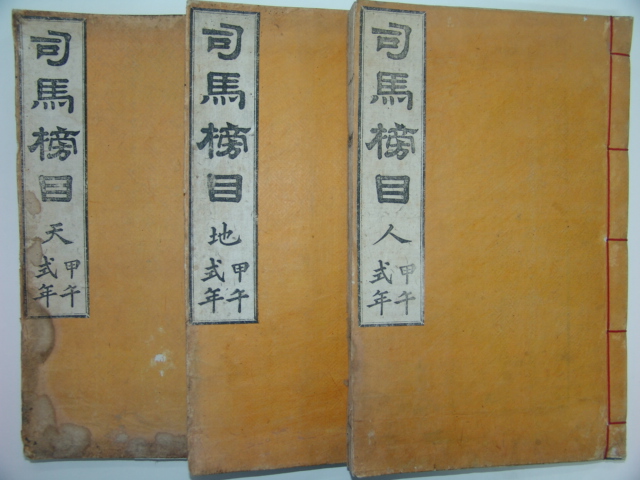 司馬榜目
天
甲午
式年
司馬榜目
地
甲午
式年
司馬榜目
人
甲午
式年